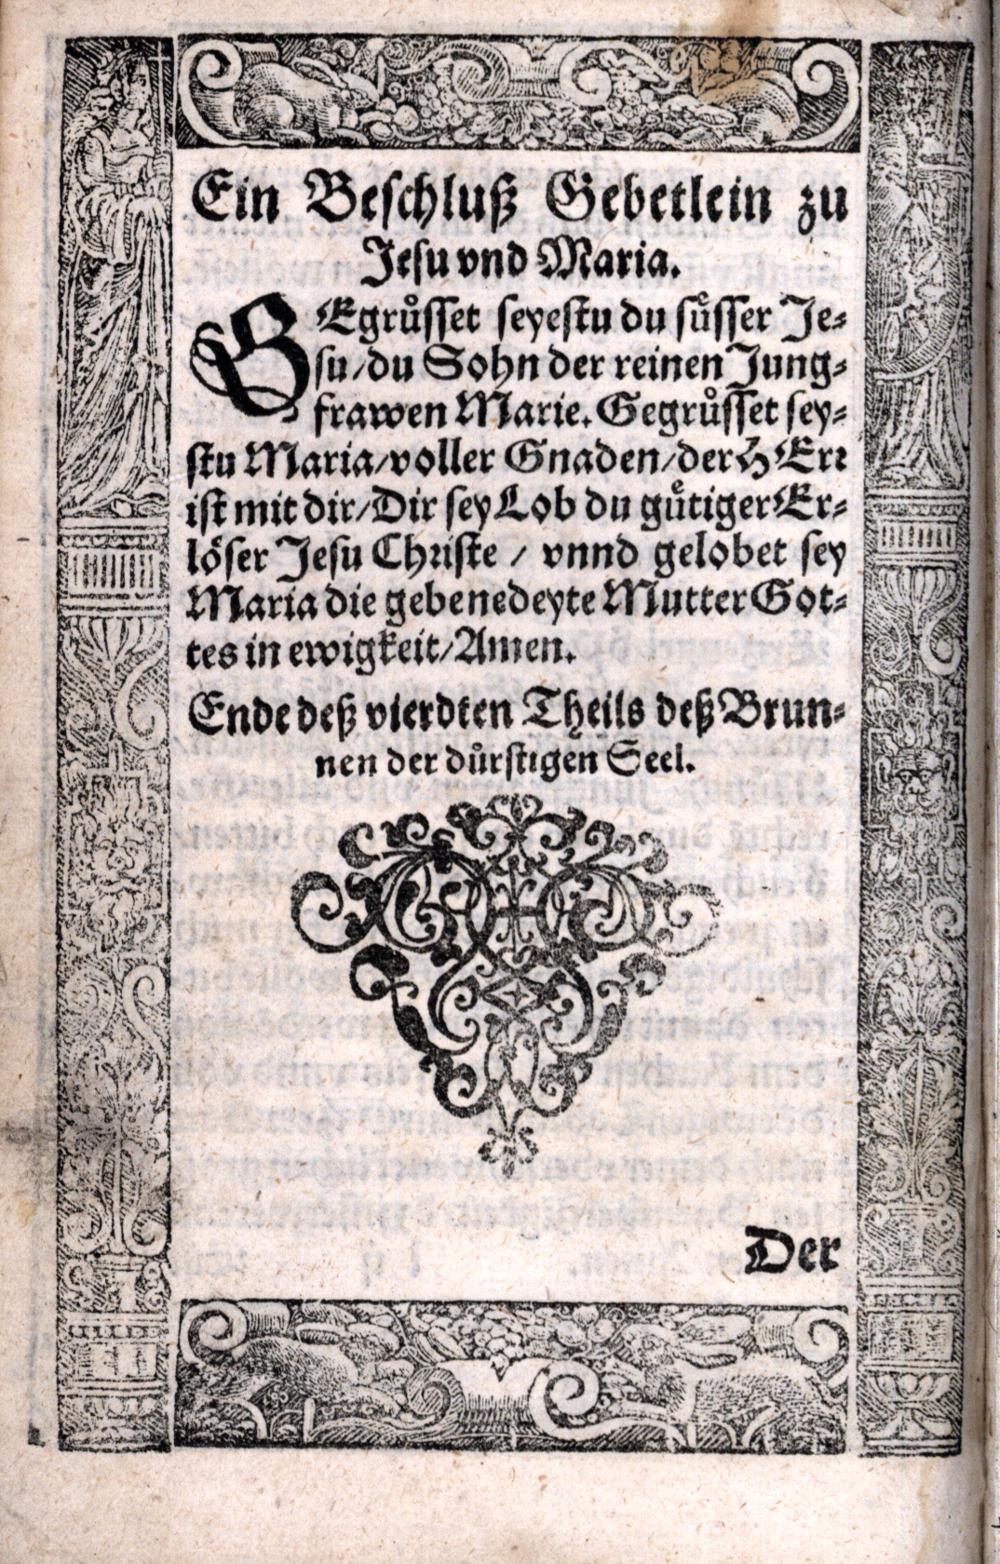 Ein Beschluß Gebetlein zu
Jesu vnd Maria.
GEgrůsset seyestu du sůsser Je⸗
su/du Sohn der reinen Jung⸗
frawen Marie. Gegrůsset sey⸗
stu Maria/voller Gnaden/der HErr
ist mit dir/Dir sey Lob du gůtiger Er⸗
lőser Jesu Christe / vnnd gelobet sey
Maria die gebenedeyte Mutter Got⸗
tes in ewigkeit/Amen.
Ende deß vierdten Theils deß Brun⸗
nen der důrstigen Seel.
Der